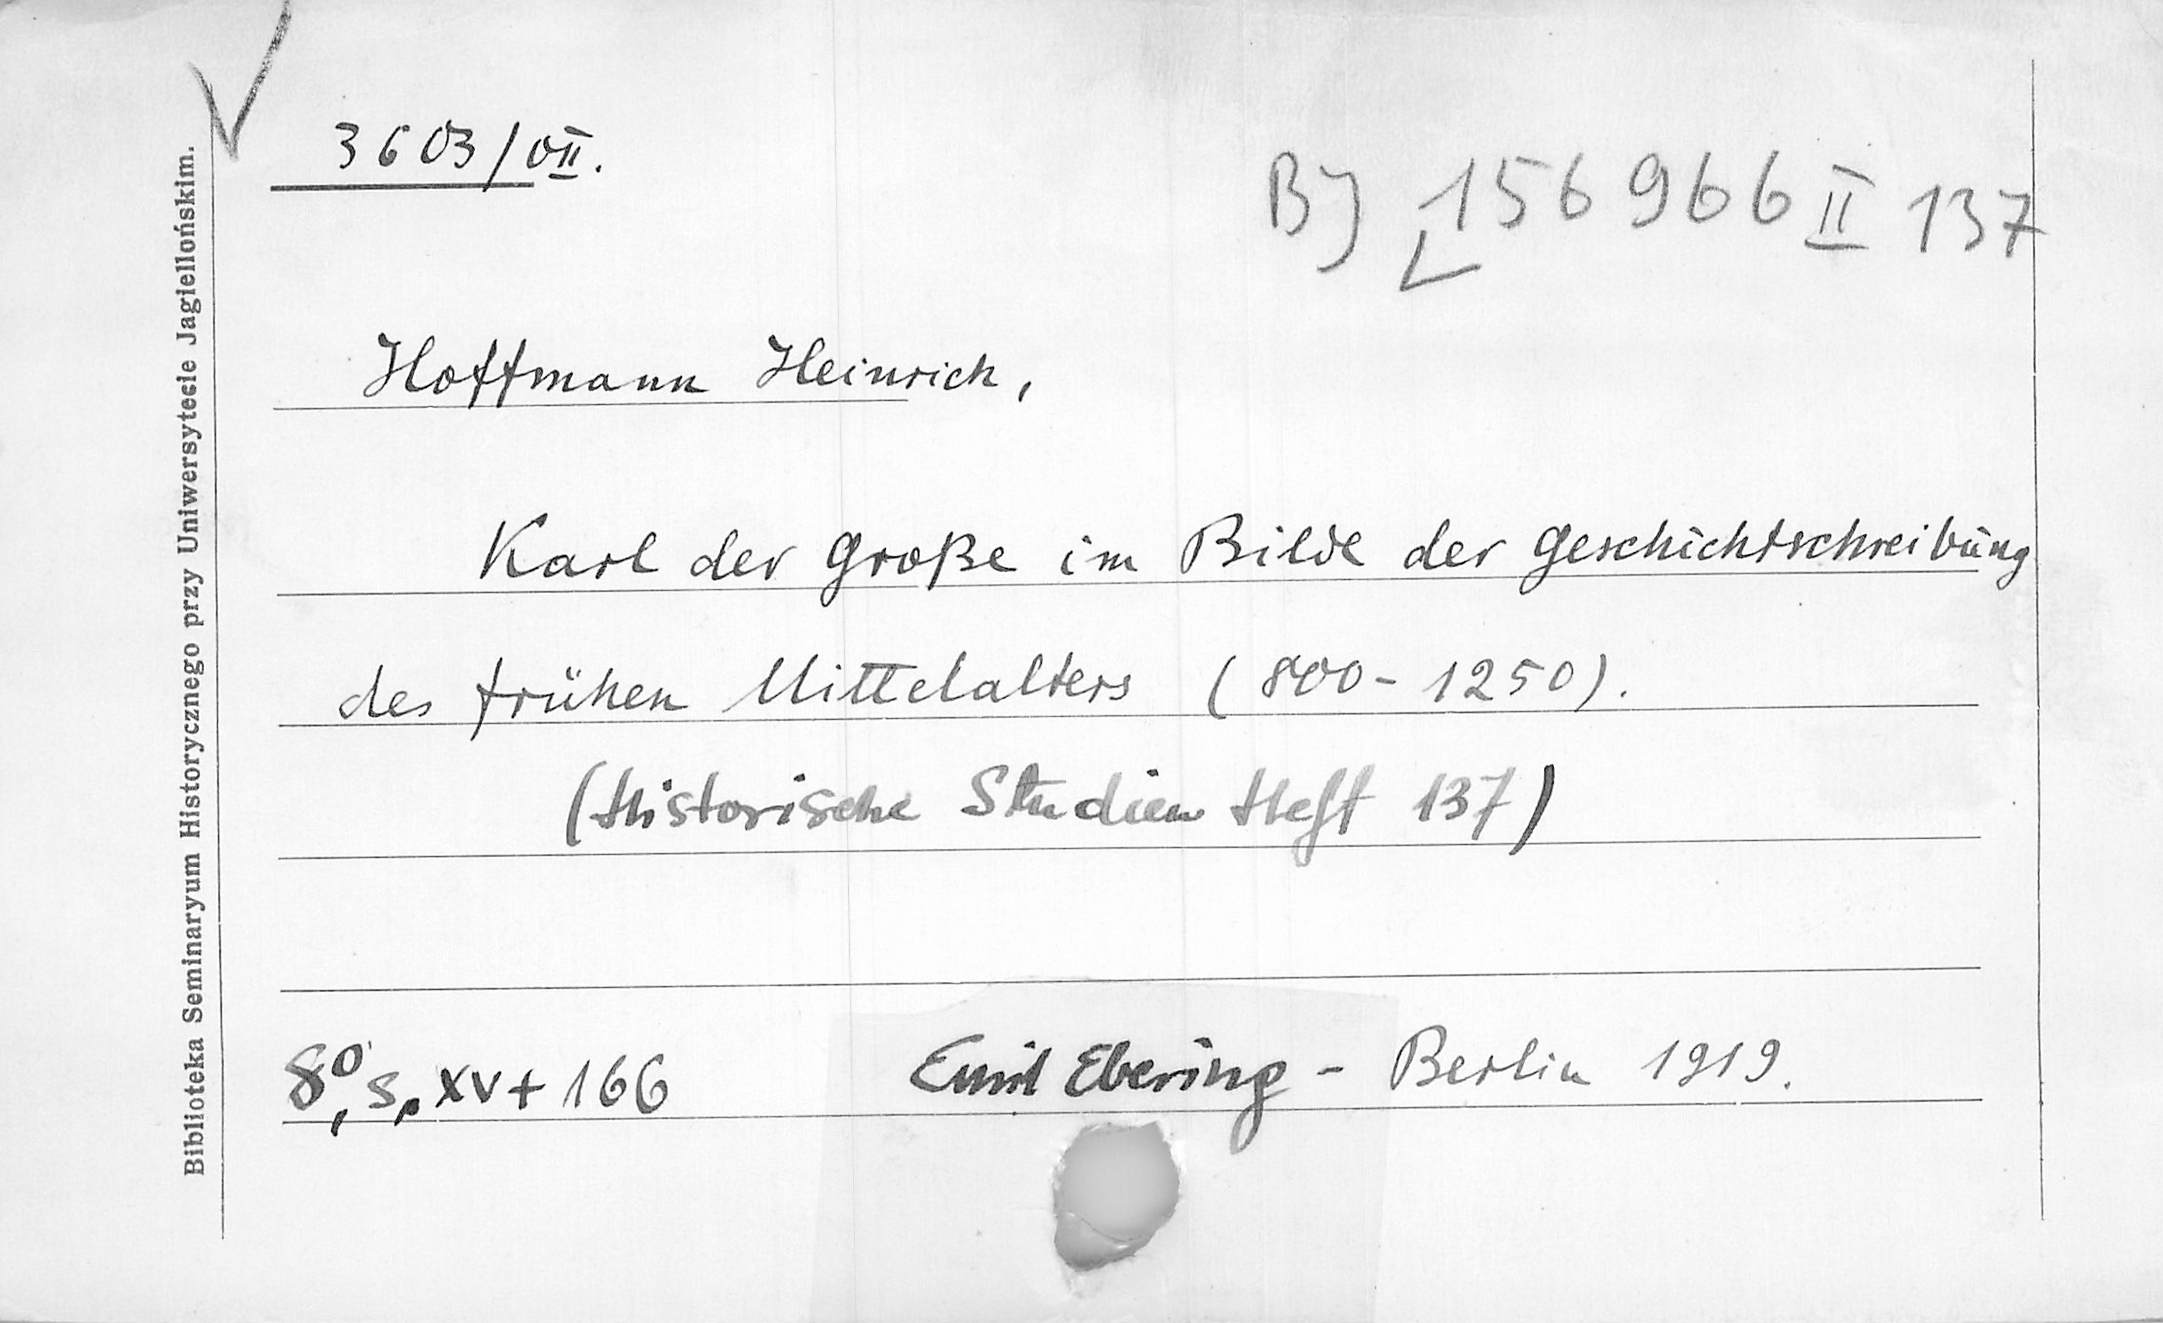 3603/VII.
BJ 156966 II 137
Hoffmann Heinrich,
Karl der Große im Bilde der Geschichtschreibung
des frühen Mittelalters (800-1250).
(Historische Studien Heft 137)
8°, s. XV + 166 Emil Ebering - Berlin 1919.
Biblioteka Seminaryum Historycznego przy Uniwersytecie Jagiellońskim.